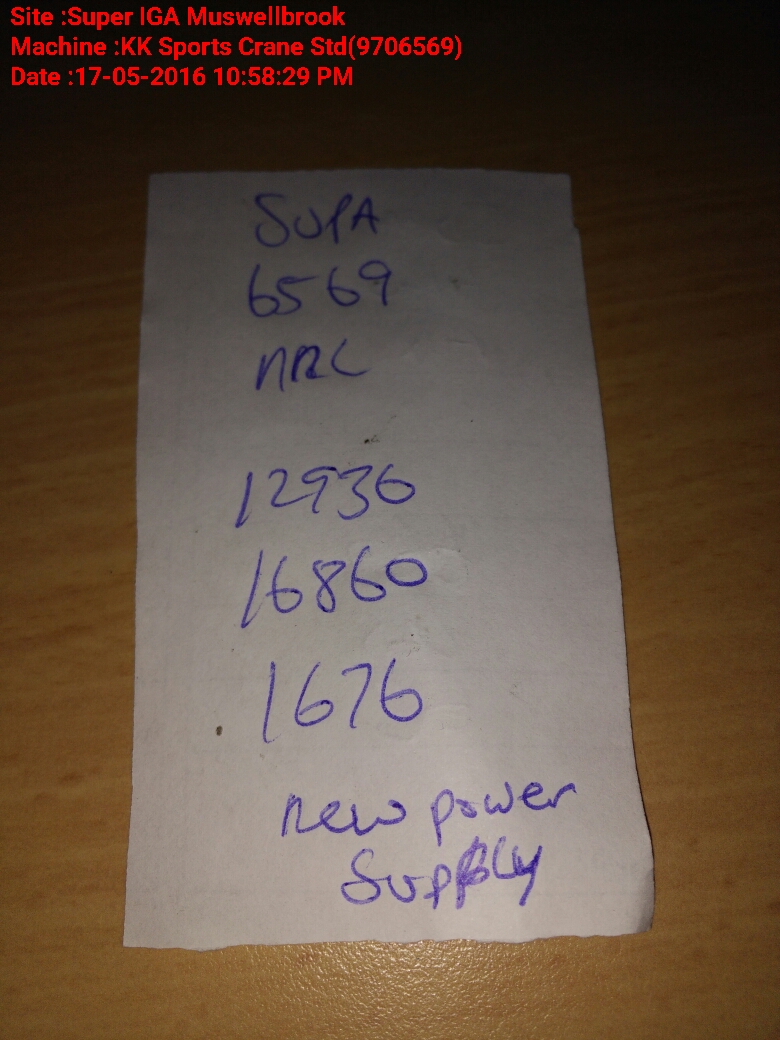 Site :Super IGA Muswellbrook
Machine :KK Sports Crane Std(9706569)
Date :17-05-2016 10:58:29 PM
SUPA
6569
NRC
12936
16860
1676
new power
Supply